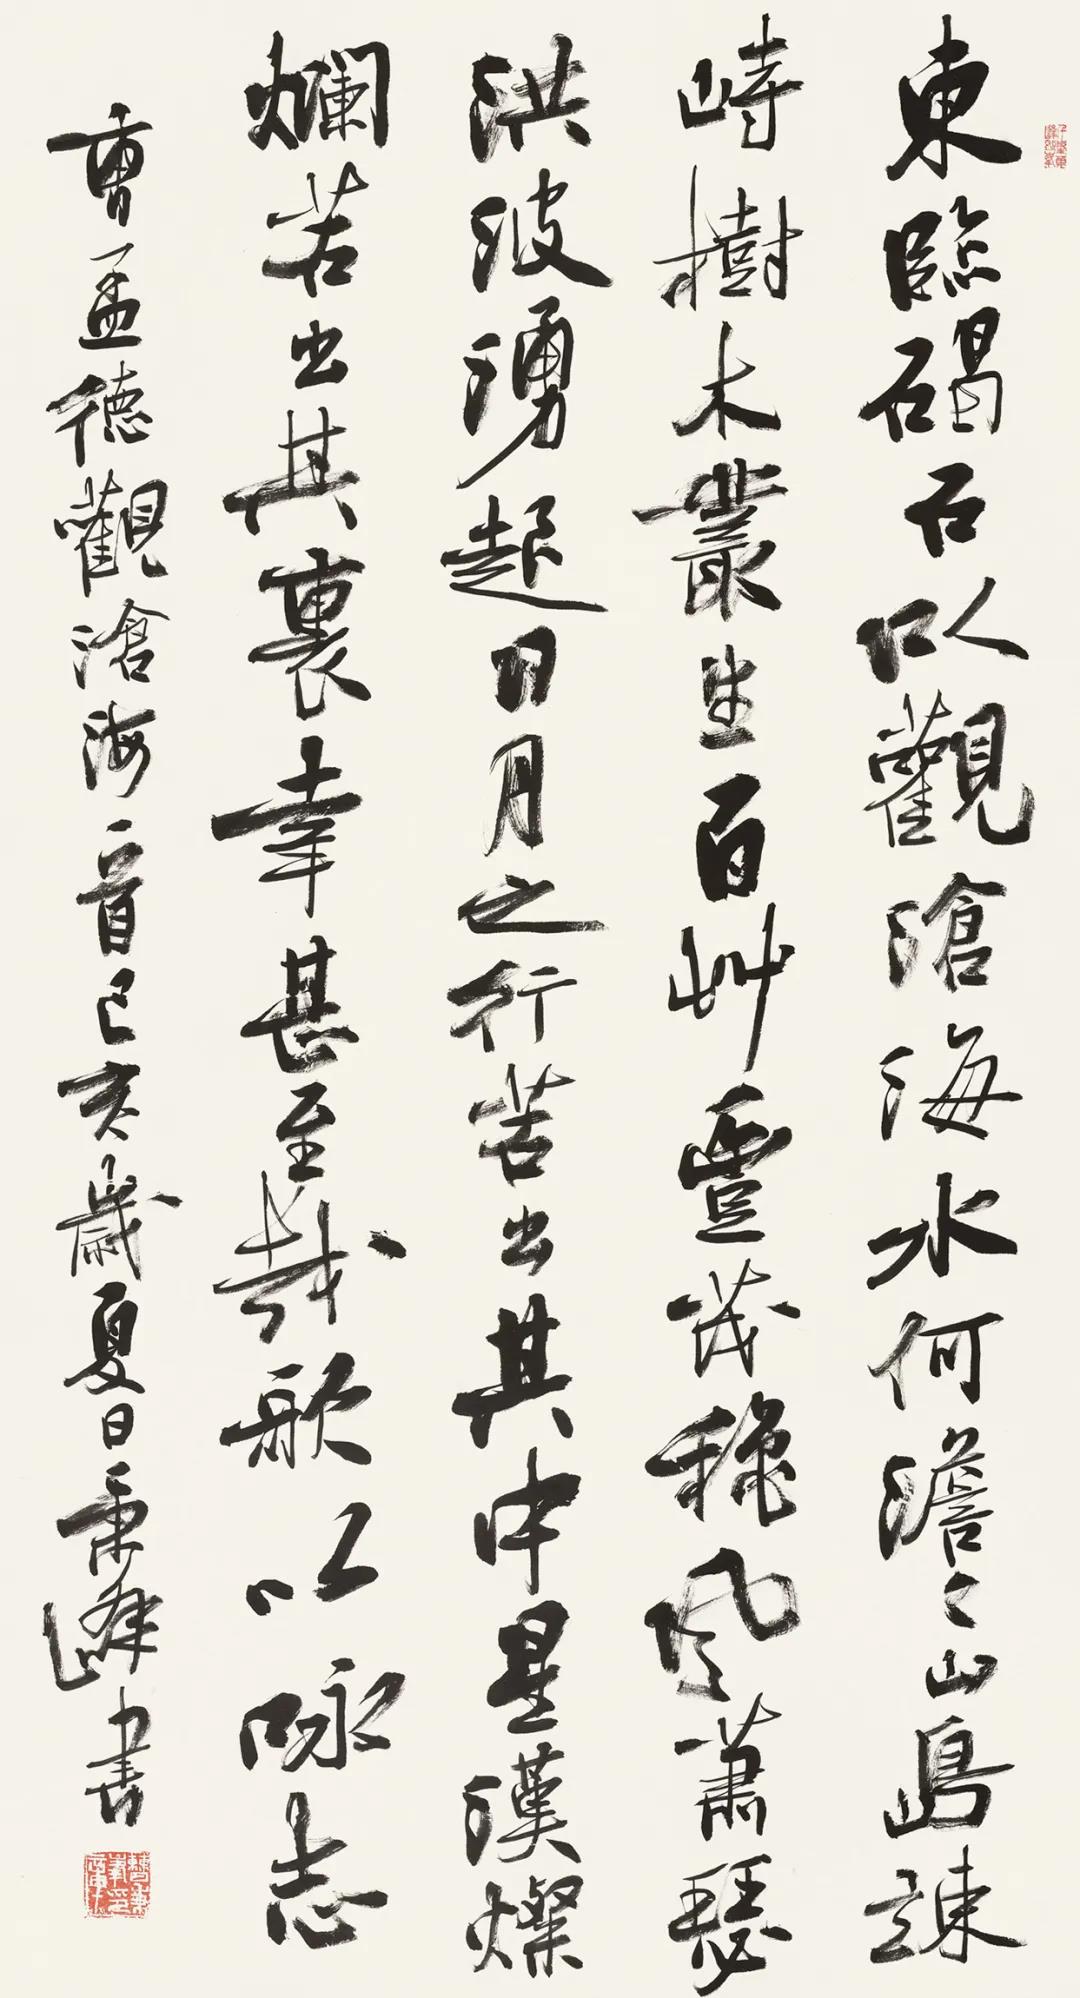 東臨碣石以觀滄海水何澹〻山島竦
峙樹木叢生百艸豐茂穐風蕭瑟
洪波湧起日月之行若出其中星漢燦
爛若出其裏幸甚至哉歌以咏志
曹孟德觀滄海一首己亥歲夏日秉峰書